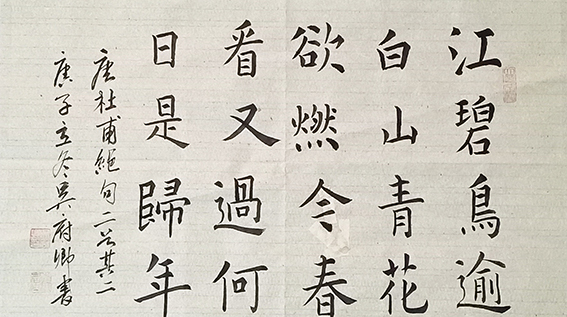 江碧鳥逾
白山青花
欲燃今春
看又過何
日是歸年
唐杜甫絕句二首其二
庚子立冬吳府卿書